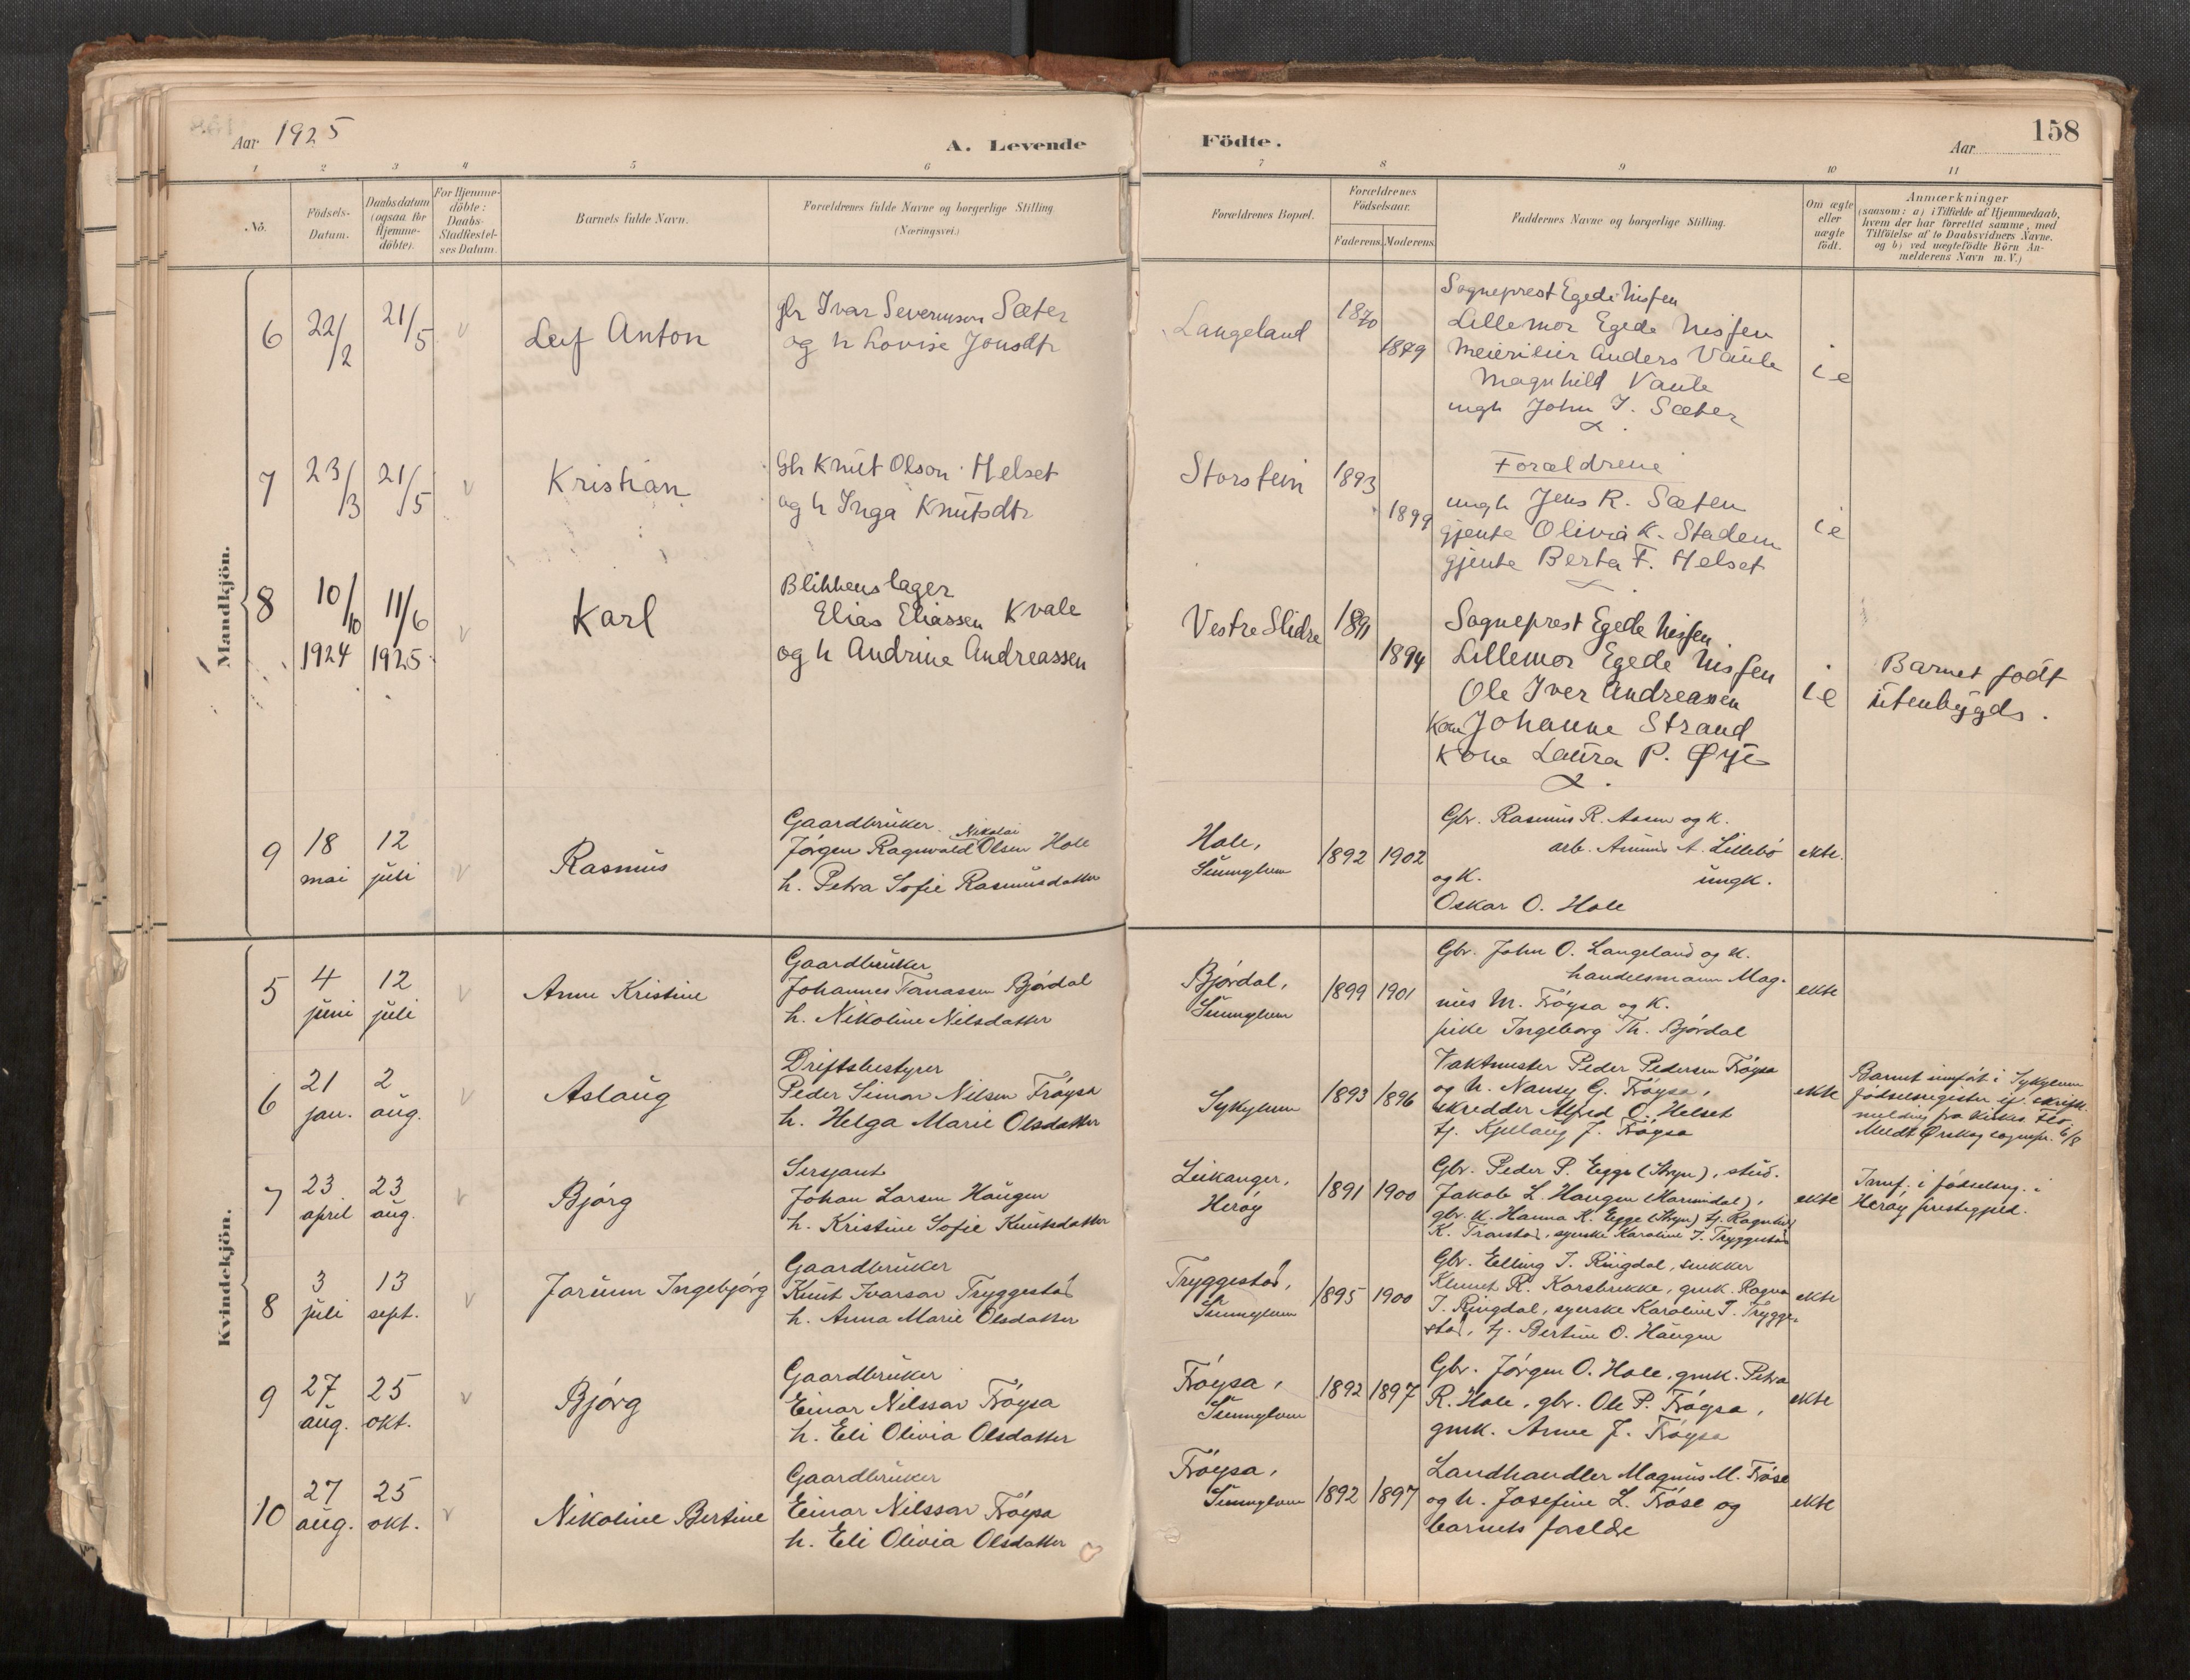 Aar 1925
A. Levende
Födte.
Aar
158
1 2 3 4 5 6 7 8 9 10 11
No.
Födsels-
Datum.
Daabsdatum
(ogsaa for
Hjemme-
döbte).
For Hjemme-
döbte:
Daabs-
Stadfæstel-
ses Datum.
Barnets fulde Navn.
Forældrenes fulde Navne og borgerlige Stilling.
(Næringsvei.)
Forældrenes Bopæl.
Forældrenes
Födselsaar.
Faderens. Moderens.
Faddernes Navne og borgerlige Stilling.
Om ægte
eller
uægte
födt.
Anmærkninger
(saasom: a) i Tilfælde af Hjemmedaab,
hvem der har forrettet samme, med
Tilföielse af to Daabsvidners Navne.
og b) ved uægtefödte Börn An-
melderens Navn m.V.)
Mandkjön.
6 22/2 21/5 v Leif Anton
gbr Ivar Severinson Sæter
og h Lovise Jonsdtr
Langeland 1870 1879
Sogneprest Egede Nissen
Lillemor Egede Nissen
Meierileier Anders Vaule
Magnhild Vaule
ungk John I. Sæter
i e
7 23/3 21/5 v Kristian
Gbr Knut Olson Helset
og h Inga Knutsdtr
Storstein 1893 1899
Forældrene
ungk Jens R. Sæter
gjente Olivia K. Stadem
gjente Berta F. Helset
i e
8 10/10 1924 11/6 1925 v Karl
Blikkenslager
Elias Eliassen Kvale
og h Andrine Andreassen
Vestre Slidre 1891 1894
Sogneprest Egede Nissen
Lillemor Egede Nissen
Ole Iver Andreassen
Kone Johanne Strand
Kone Laura P. Øye
i e
Barnet født
utenbygds.
9 18 mai 12 juli v Rasmus
Gaardbruker
Nikolai
Jørgen Ragnvald Olsen Hole
h. Petra Sofie Rasmusdatter
Hole,
Sunnylven 1892 1902
Gbr. Rasmus R. Aasen og k.
arb. Amus A. Lillebø
og k. ungk.
Oskar O. Hole
ekte.
Kvindekjön.
5 4 juni 12 juli v Anne Kristine
Gaardbruker
Johannes Tomassen Bjørdal
h. Nikoline Nilsdatter
Bjørdal,
Sunnylven 1899 1901
Gbr. John O. Langeland og k.
handelsmann Mag-
nus M. Frøysa og k.
pike Ingeborg Th. Bjørdal
ekte
6 21 jan. 2 aug. v Aslaug
Driftsbestyrer
Peder Simon Nilsen Frøysa
h. Helga Marie Olsdatter
Sykylven 1893 1896
Vaktmester Peder Pedersen Frøysa
og h. Nancy G. Frøysa,
skredder Alfred O. Helset
tj. Kjellaug J. Frøysa
ekte
Barnet innført i Sykylven
fødselsregister if. skriftl.
melding fra kirkes.
Meldt Ørskog sognepr. 6/8
7 23 april 23 aug. v Bjørg
Sersjant
Johan Larsen Haugen
h. Kristine Sofie Knutsdatter
Leikanger,
Herøy 1891 1900
Gbr. Peder P. Egge (Stryn), stud.
Jakob L. Haugen (Harindal),
gbr. k. Hanna K. Egge (Stryn) tj. Ragnhild
K. Tronstad, syerske Karoline I. Tryggestad
ekte
Innf. i fødselsreg. i
Herøy prestegjeld.
8 3 juli 13 sept. v Jorunn Ingebjørg
Gaardbruker
Knut Ivarson Tryggestad
h. Anna Marie Olsdatter
Tryggestad,
Sunnylven 1895 1900
Gbr. Elling I. Ringdal, snekker
Klemet R. Korsbrekke, gmk. Ragna
I. Ringdal, syerske Karoline I. Trygge-
stad, tj. Bertine O. Haugen
ekte
9 27 aug. 25 okt. v Bjørg
Gaardbruker
Einar Nilsson Frøysa
h. Eli Olivia Olsdatter
Frøysa,
Sunnylven 1892 1897
Gbr. Jørgen O. Hole, gmk. Petra
R. Hole, gbr. Ole P. Frøysa,
gmk. Anne J. Frøysa
ekte
10 27 aug. 25 okt. v Nikoline Bertine
Gaardbruker
Einar Nilsson Frøysa
h. Eli Olivia Olsdatter
Frøysa,
Sunnylven 1892 1897
Landhandler Magnus M. Frøse
og h. Josefine L. Frøse og
barnets forelde
ekte